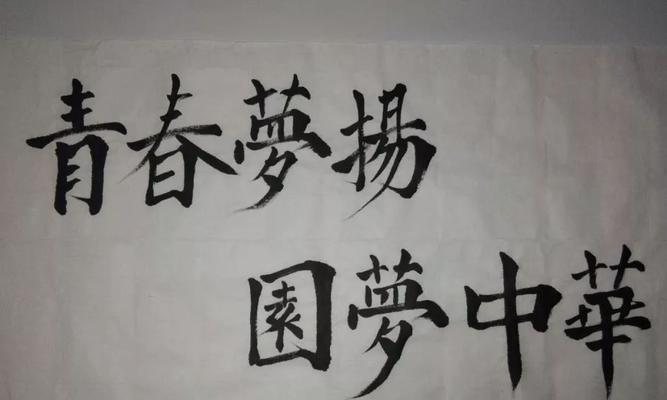 青春夢揚
園夢中華